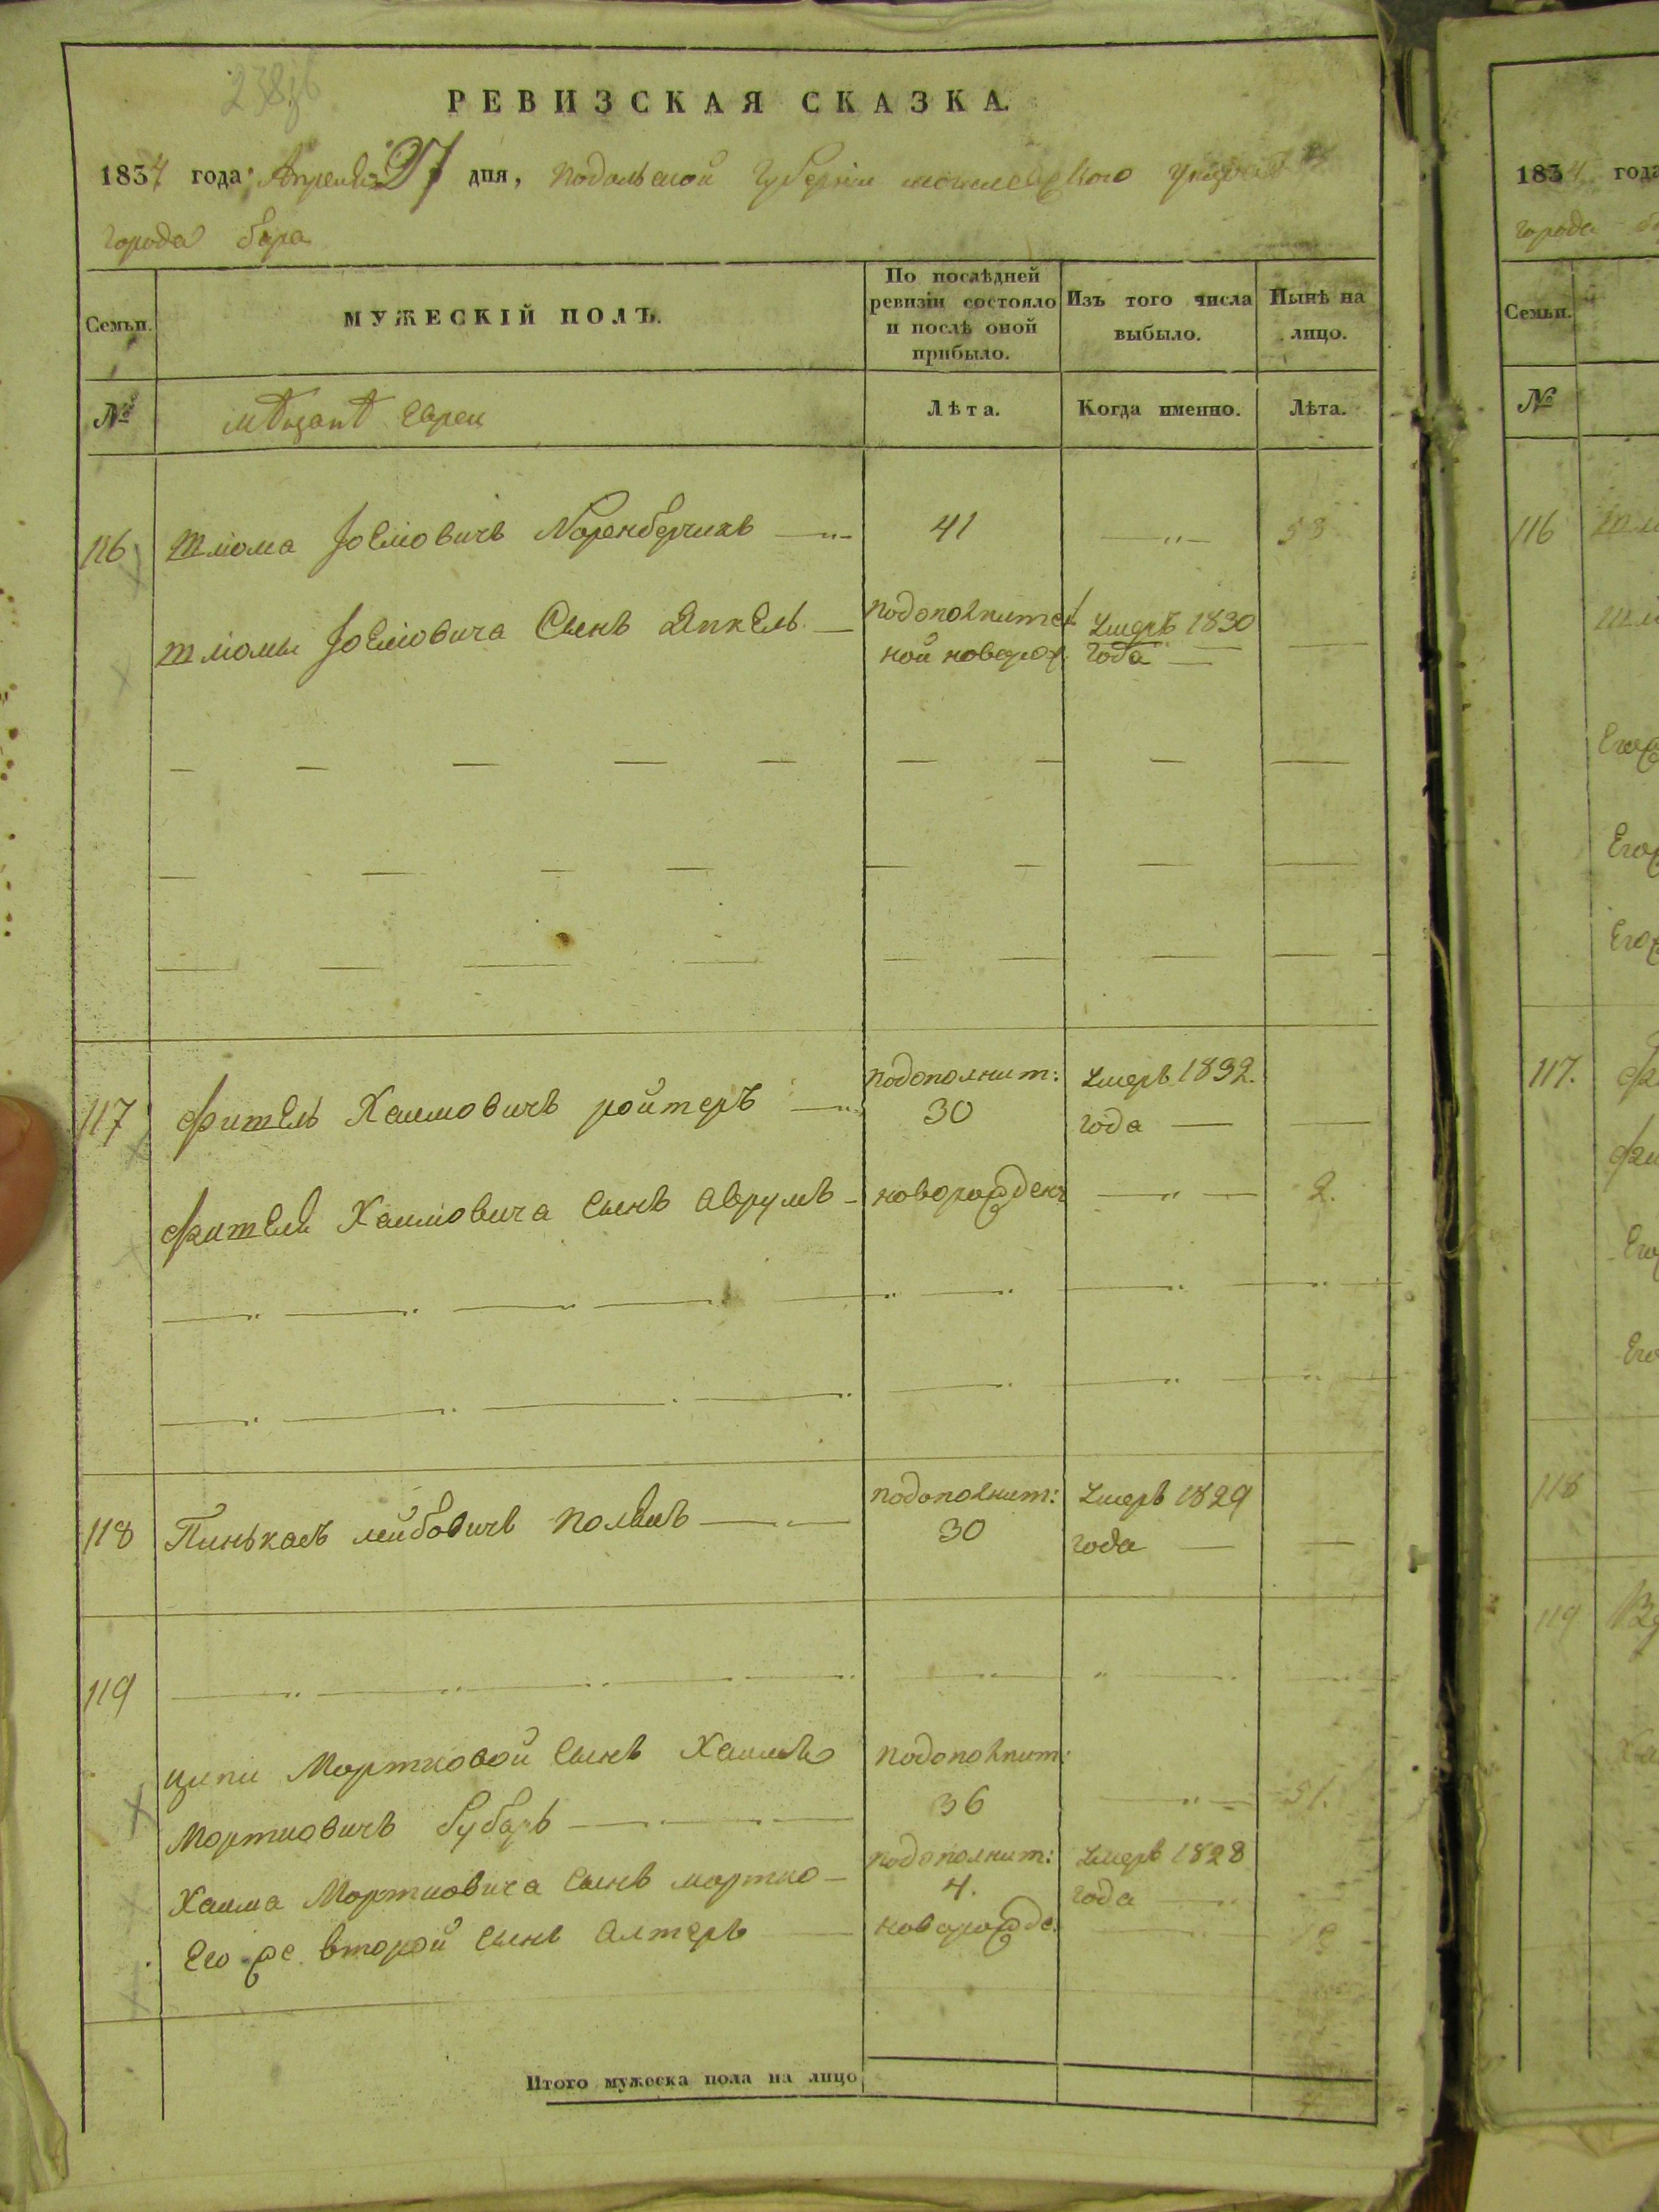 РЕВИЗСКАЯ СКАЗКА.
1834 года Апреля 27 дня, подольской Губерніи могилевского уезда
города бара
Семьи.
МУЖЕСКІЙ ПОЛЪ.
По послѣдней ревизіи состояло и послѣ оной прибыло.
Изъ того числа выбыло.
Нынѣ на лицо.
№
мѣщанѣ евреи
Лѣта.
Когда именно.
Лѣта.
116 Шліома Іосіовичъ 41 53
Шліомы сынъ Янкель подополнител ной новорож. умерѣ 1830 года
117 фишель Хаимовичъ ройтеръ подополнит: 30 умеръ 1832. года
фишеля Хаимовича сынъ аврумъ новорожден 2.
118 Пинькасъ лейбовичъ подополнит: 30 умеръ 1829 года
119
ципи Мортковой сынъ Хаимъ подополнит:
Мортковичъ 36 51.
Хаима Мортковича сынъ мортко подополнит: 4. умеръ 1828 года
его же второй сынъ Алтеръ новорожде.
Итого мужеска пола на лицо
1834 года
города
Семьи.
№
116
117.
118
119